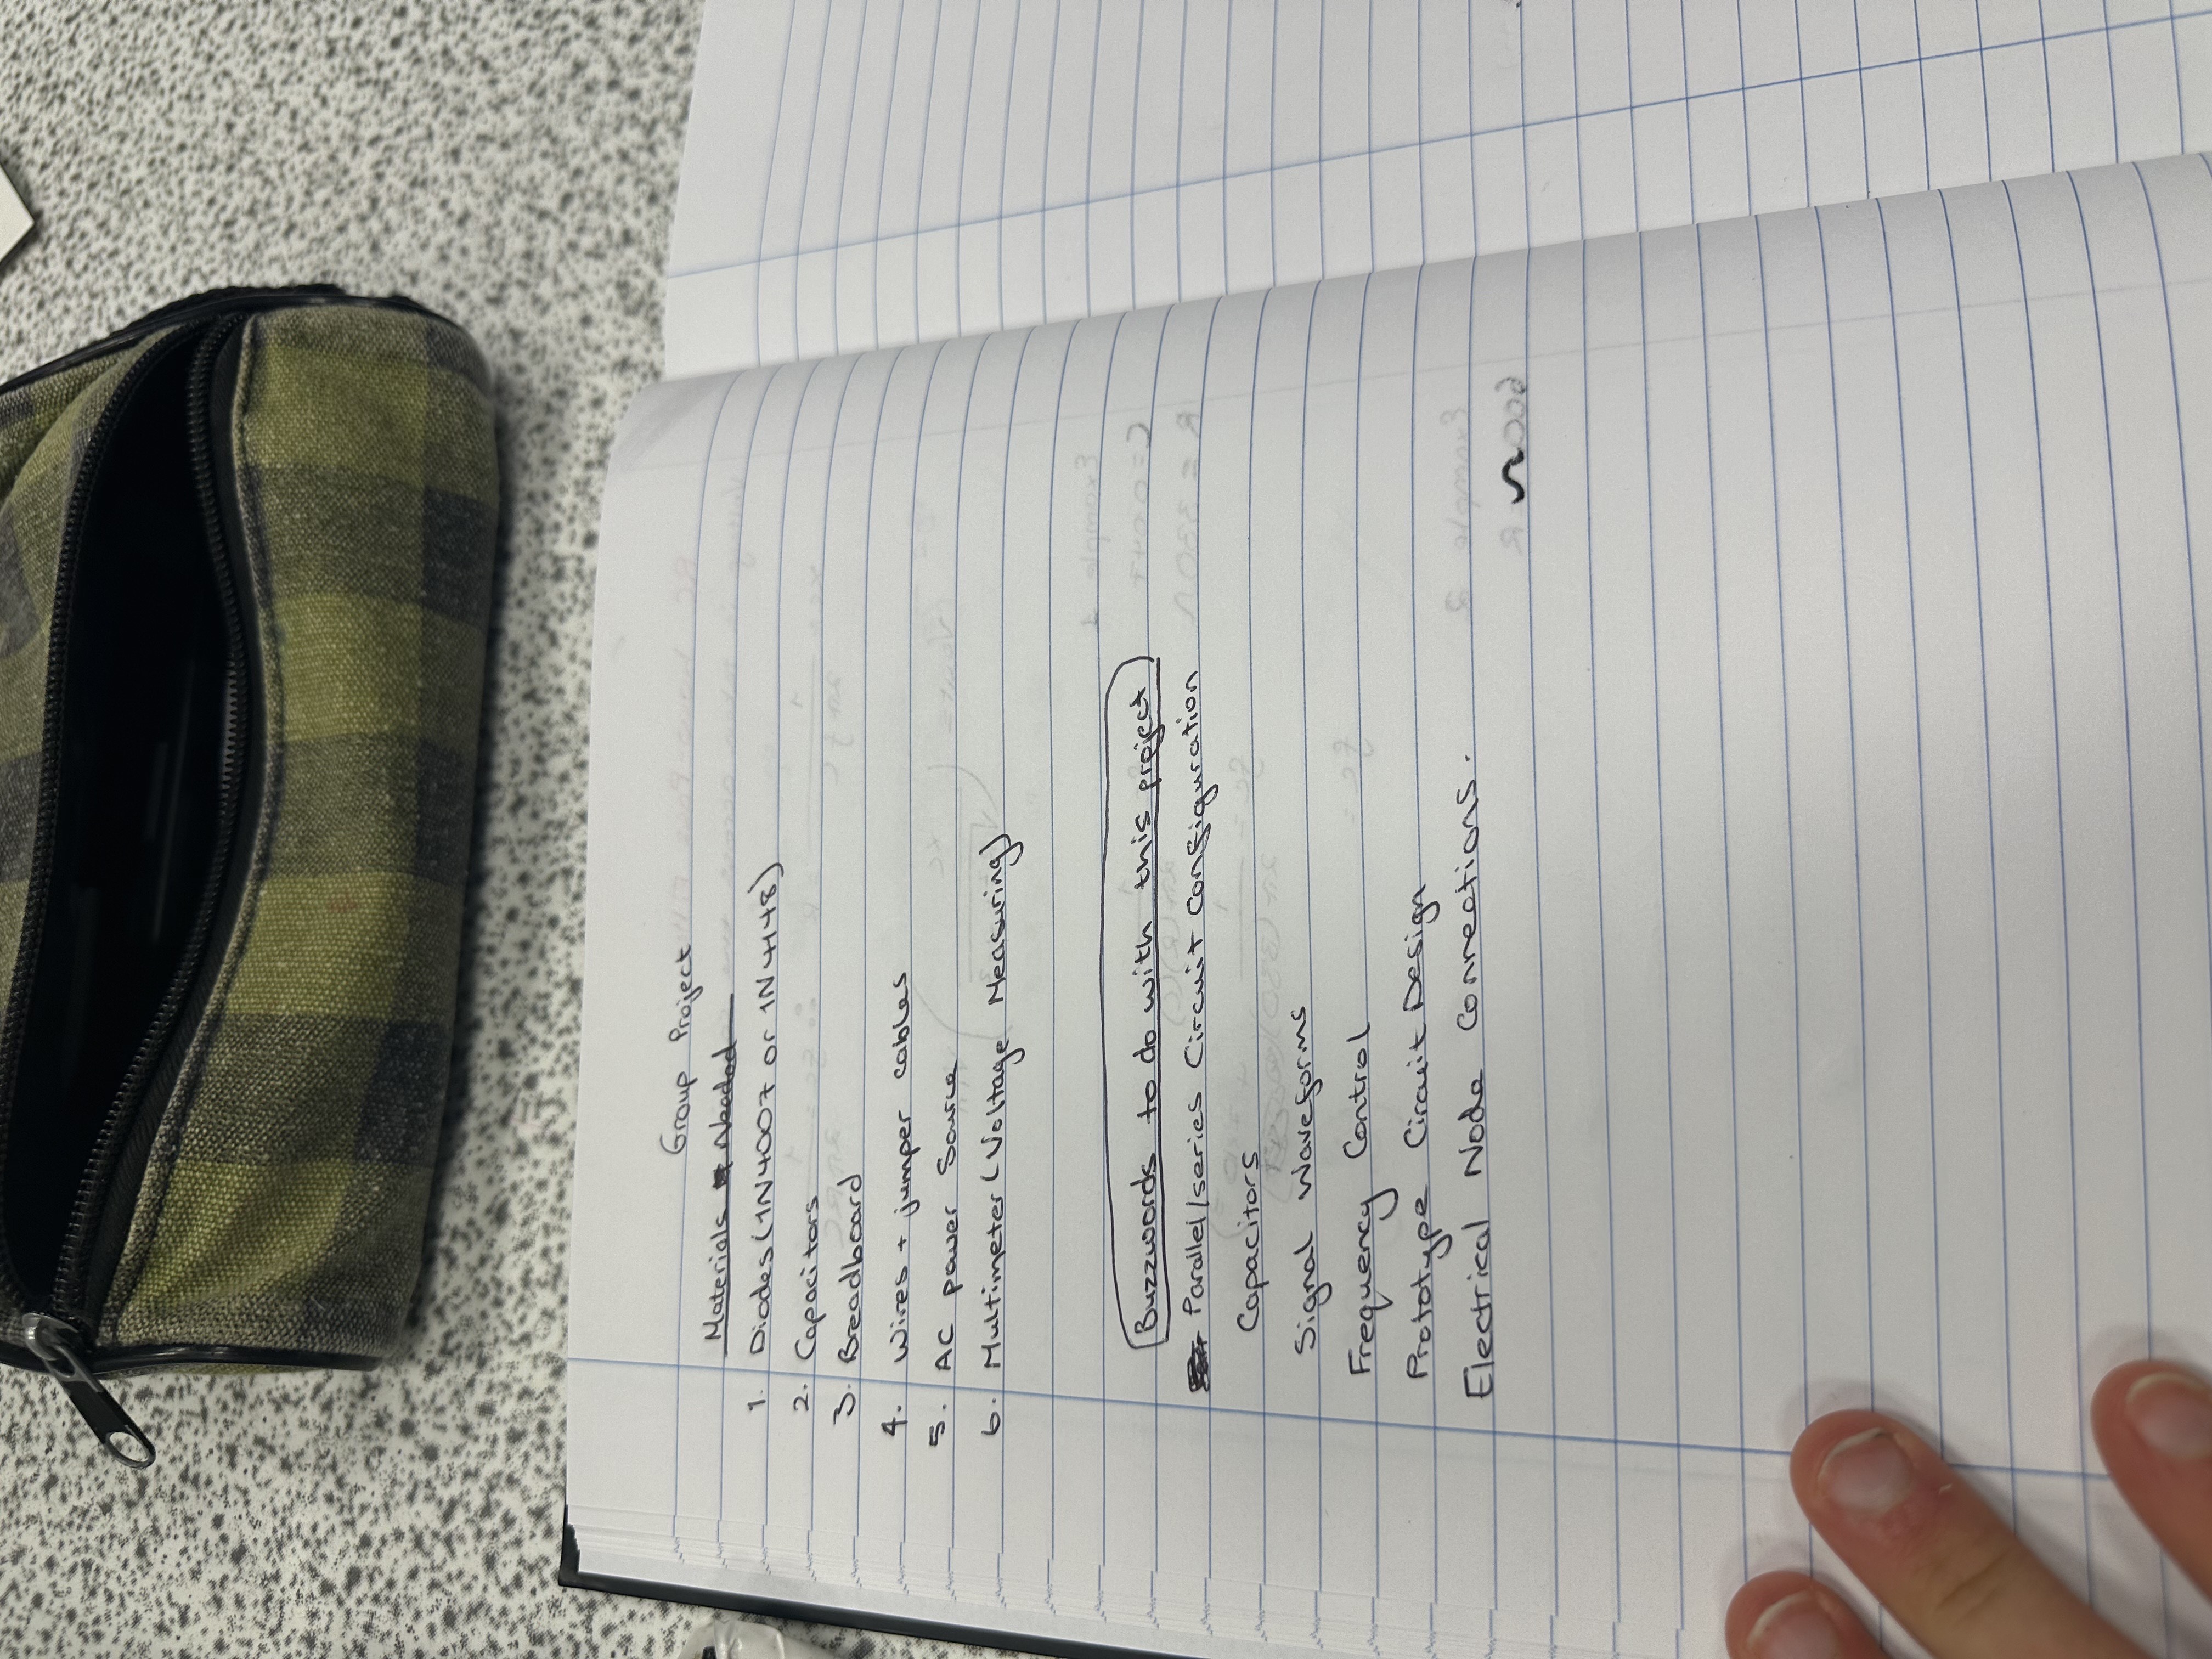 Group Project
Materials Needed
1. Diodes (1N4007 or 1N4148)
2. Capacitors
3. Breadboard
4. Wires + jumper cables
5. AC power Source
6. Multimeter (Voltage Measuring)
Buzzwords to do with this project
Parallel/series Circuit Configuration
Capacitors
Signal Waveforms
Frequency Control
Prototype Circuit Design
Electrical Node Connections.